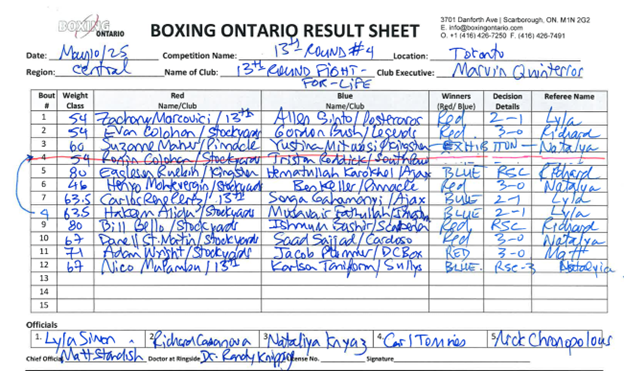 BOXING ONTARIO
BOXING ONTARIO RESULT SHEET
3701 Danforth Ave | Scarborough, ON. M1N 2G2
E. info@boxingontario.com
O. +1 (416) 426-7250 F. (416) 426-7491
Date: May10/25 Competition Name: 13th-ROUND #4 Location: Toronto
Region: Central Name of Club: 13th ROUND FIGHT-FOR-LIFE Club Executive: Marvin Quinteros
Bout # Weight Class Red Name/Club Blue Name/Club Winners (Red/Blue) Decision Details Referee Name
1 54 Zachary Marcovici / 13th Allen / Red 2-1 Lyla
2 54 Evan Colohan / Stockyards Gordon Bush / Legends Red 3-0 Richard
3 60 Suzanne Maher / Pinnacle Yustina / Kingston EXHIBITION Natalya
4 54 Ronin Colohan / Stockyards Tristan Roddick / Southpaw
5 80 / Kingston Hematullah Karokhel / Ajax BLUE RSC Richard
6 46 Henyo / Stockyards Ben Keller / Pinnacle Red 3-0 Natalya
7 63.5 Carlos / 13th / Ajax BLUE 2-1 Lyla
4 63.5 Hakeem / Stockyards Fathullah / BLUE 2-1 Lyla
9 80 Bill Bello / Stockyards Bashir / Red RSC Richard
10 67 Darell St. Martin / Stockyards Saad Sajjad / Cardoso Red 3-0 Natalya
11 71 Adam Wright / Stockyards Jacob / DCBox RED 3-0 Matt
12 67 Nico Mutamba / 13th Karlson Taniform / Sullys BLUE RSC-3 Natalyia
13
14
15
Officials
1. Lyla Simon 2 Richard Casanova 3 Nataliya Knyaz 4. Carl Tommes 5 Nick Chronopolous
Chief Official Matt Standish Doctor at Ringside Dr. Randy License No. Signature